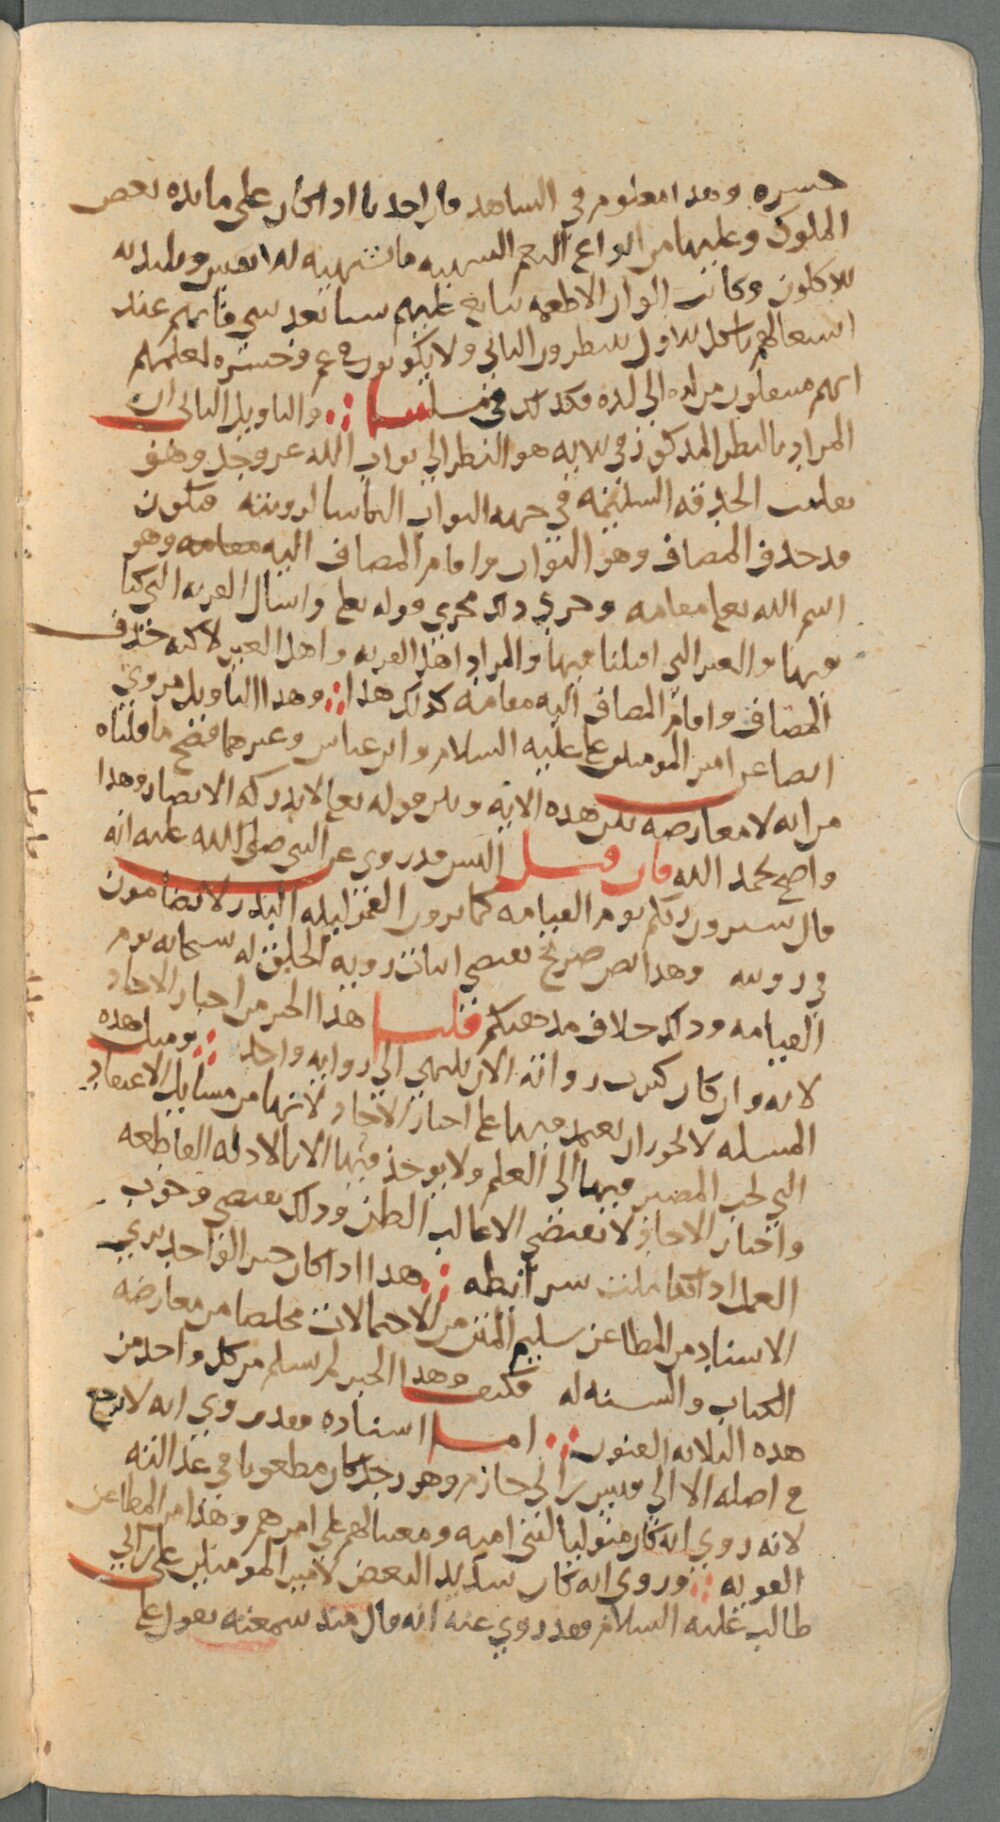 حسره وهذا معلوم في الشاهد فان احدنا اذا كان على مائده بعض
الملوك وعليها من انواع النعم الشهيه ما تشتهيه له النفس ويلتذ به
الاكلون وكانت الوان الاطعمه تتابع عليهم شيا بعد شي فانهم عند
اشتغالهم باكل الاول ينتظرون الثاني ولا يكونون في غم وحسره لعلمهم
انهم منتقلون من لذه الى لذه فكذلك في مسلتنا والتاويل الثاني ان
المراد بالنظر المذكور في الايه هو النظر الى ثواب الله عز وجل وهو
تقليب الحدقه السليمه في جهه الثواب التماسا لرويته فيكون
قد حذف المضاف وهو الثواب واقام المضاف اليه مقامه وهو
اسم الله تعالى مقامه وجرى ذلك مجرى قوله تعالى واسال القريه التي كنا
فيها والعير التي اقبلنا فيها والمراد اهل القريه واهل العير لاكنه حذف
المضاف واقام المضاف اليه مقامه كذلك هذا وهذا التاويل مروي
ايضا عن امير المومنين علي عليه السلام وابن عباس وغيرهما فصح ما قلناه
من انه لا معارضه بين هذه الايه وبين قوله تعالى لا تدركه الابصار وهذا
واضح بحمد الله فان قيل اليس قد روي عن النبي صلى الله عليه انه
قال سترون ربكم يوم القيامه كما ترون القمر ليله البدر لا تضامون
في رويته وهذا نص صريح يقتضي اثبات رويه الخلق له سبحانه يوم
القيامه وذلك خلاف مذهبكم قلنا هذا الخبر من اخبار الاحاد
لانه وان كان كثرت رواته الان ينتهي الى روايه واحد ومثل هذه
المسله لا يجوز ان يعتمد فيها على اخبار الاحاد لانها من مسايل الاعتقاد
التي يجب المصير فيها الى العلم ولا يوخذ فيها الا بالادله القاطعه
واخبار الاحاد لا تقتضي الا غالب الظن وذلك يقتضي وجوب
العمل اذا تكاملت شرائطه هذا اذا كان خبر الواحد بري
الاسناد من المطاعن سليم المتن من الاحتمالات مخلصا من معارضه
الكتاب والسنه له فكيف وهذا الخبر لم يسلم من كل واحد من
هذه الثلاثه الفنون اما اسناده فقد روي انه لا يرجع
في اصله الا الى قيس بن ابي حازم وهو رجل كان مطعونا في عدالته
لانه روي انه كان متوليا لبني اميه ومعينا لهم على امرهم وهذا من المطاعن
القويه وروي انه كان شديد البغض لامير المومنين علي بن ابي
طالب عليه السلام فقد روي عنه انه قال منذ سمعته يقول على